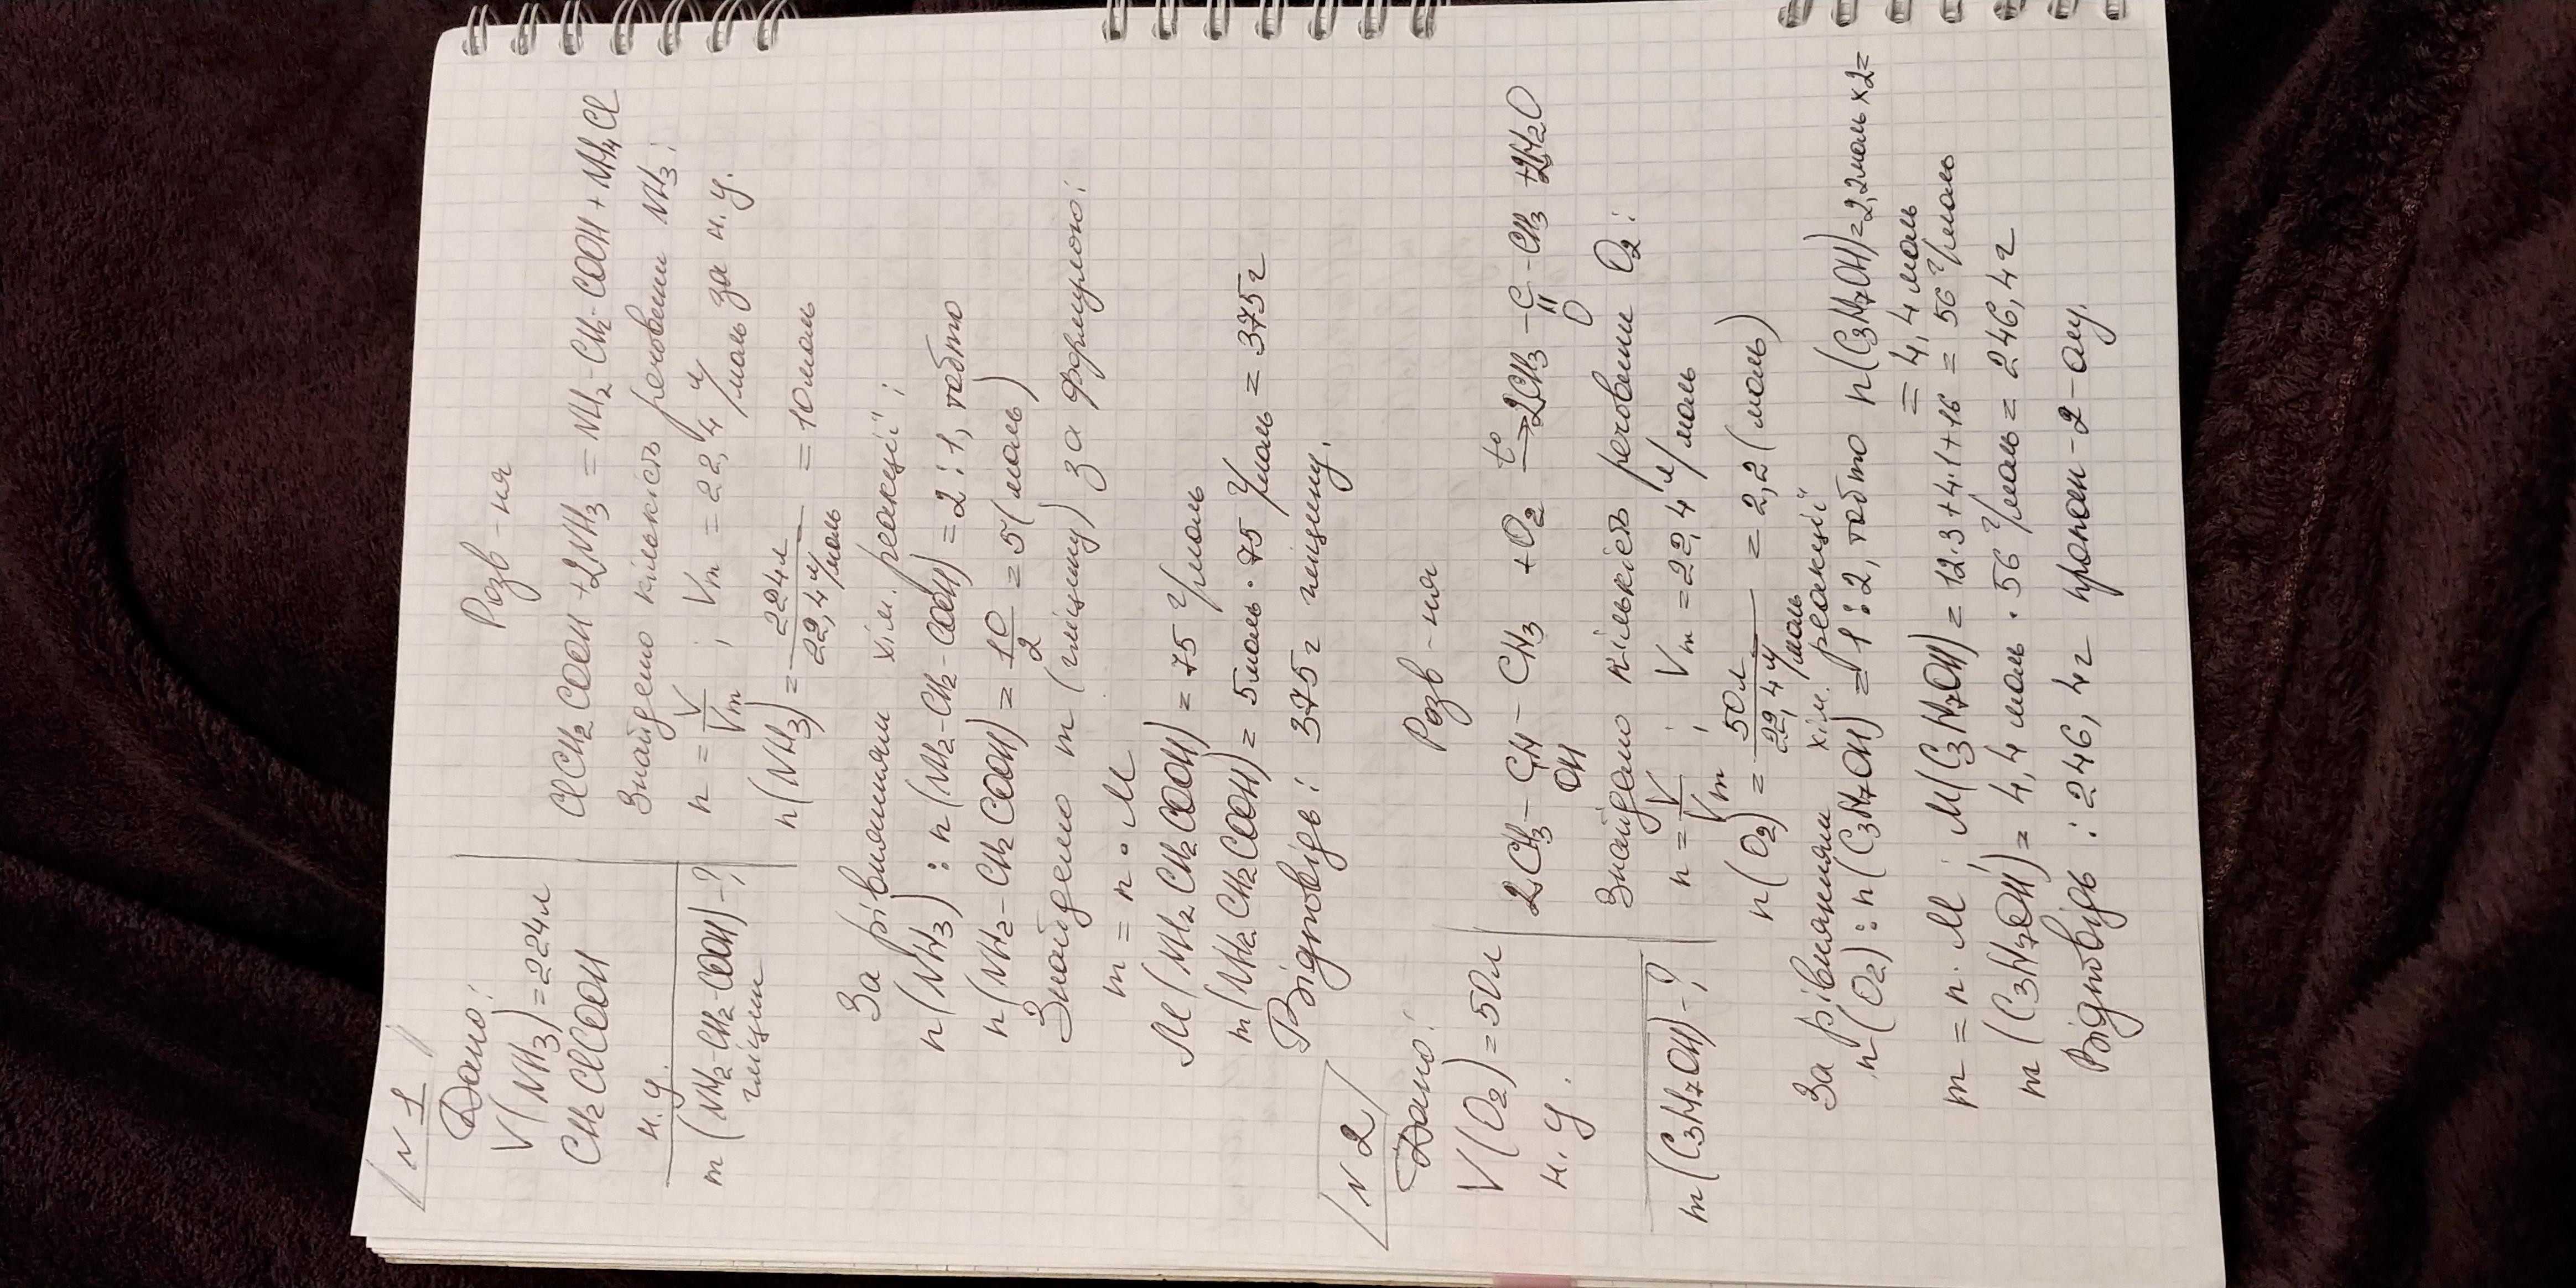 N 1
Дано:
V(NH₃)=224л
CH₂ClCOOH
н.у.
m(NH₂-CH₂-COOH)-?
гліцин
Розв-ня
ClCH₂COOH+2NH₃ = NH₂-CH₂-COOH+NH₄Cl
Знайдемо кількість речовини NH₃:
n = V/Vm ; Vm = 22,4 л/моль за н.у.
n(NH₃) = 224л/22,4 л/моль = 10моль
За рівнянням хім. реакції:
n(NH₃) : n(NH₂-CH₂-COOH) = 2:1, тобто
n(NH₂-CH₂COOH) = 10/2 = 5(моль)
Знайдемо m (гліцину) за формулою:
m = n · M
M(NH₂CH₂COOH) = 75 г/моль
m(NH₂CH₂COOH) = 5моль · 75 г/моль = 375г
Відповідь: 375г гліцину.
N 2
Дано:
V(O₂)=50л
н.у.
m(C₃H₇OH)-?
Розв-ня
2CH₃-CH-CH₃ +O₂ t°→ 2CH₃-C-CH₃ +2H₂O
OH
O
Знайдемо кількість речовини O₂:
n = V/Vm ; Vm = 22,4 л/моль
n(O₂) = 50л/22,4 л/моль = 2,2(моль)
За рівнянням хім. реакції
n(O₂) : n(C₃H₇OH) = 1:2, тобто n(C₃H₇OH)=2,2моль×2=
= 4,4 моль
m = n · M M(C₃H₇OH) = 12·3+4·1+16 = 56 г/моль
m(C₃H₇OH) = 4,4 моль · 56 г/моль = 246,4г
Відповідь : 246,4г пропан-2-олу.